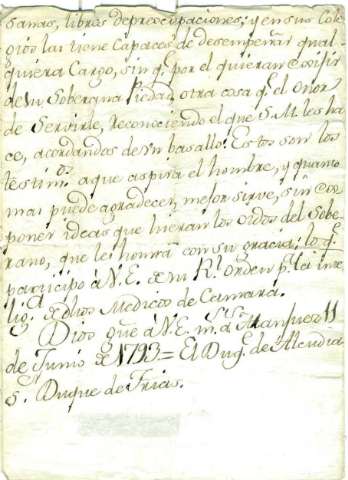 sanas, libres de preocupaciones; y en sus Cole
gios las tiene Capaces de desempeñar qual-
quiera Cargo, sin q.^e por el quieran exigir
de su Soberana Piedad otra cosa q.^e el onor
de Servirle, reconociendo el que S.M. les ha
ce, acordandose de un basallo. Estos son los
testim.^os a que aspira el hombre, y quanto
mas puede agradecer, mejor sirve, sin ex
poner ideas que hieran los oidos del Sobe
rano, que les honrra con su gracia: lo q.^e
participo á V.E. de su R.^l orden p.^a la inte
lig.^a de dhos Medicos de Camara.
Dios gue á V.E. m.^s a.^s Aranjuez 11
de Junio de 1793 = El Duq.^e de Alcudia
S. Duque de Frias.